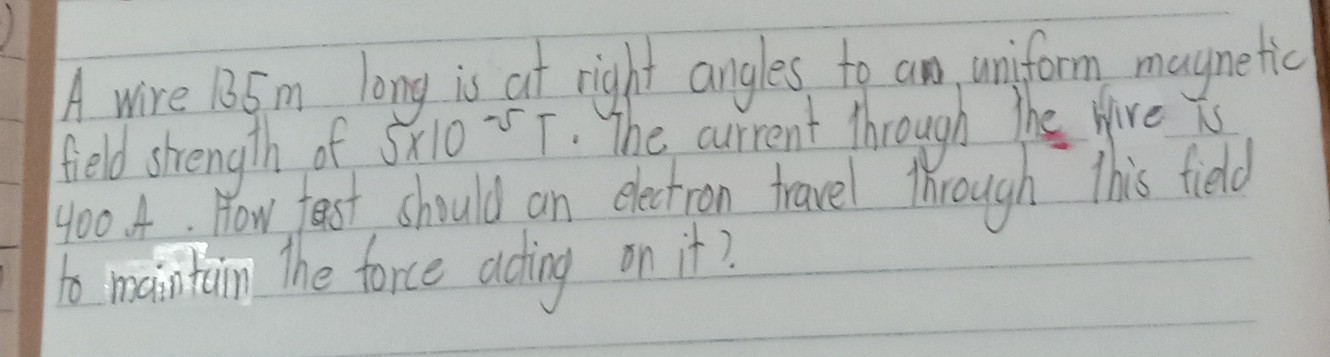 A wire 135m long is at right angles to an uniform magnetic
field strength of 5x10⁻⁵ T. The current through the wire is
400 A. How fast should an electron travel through this field
to maintain the force acting on it?